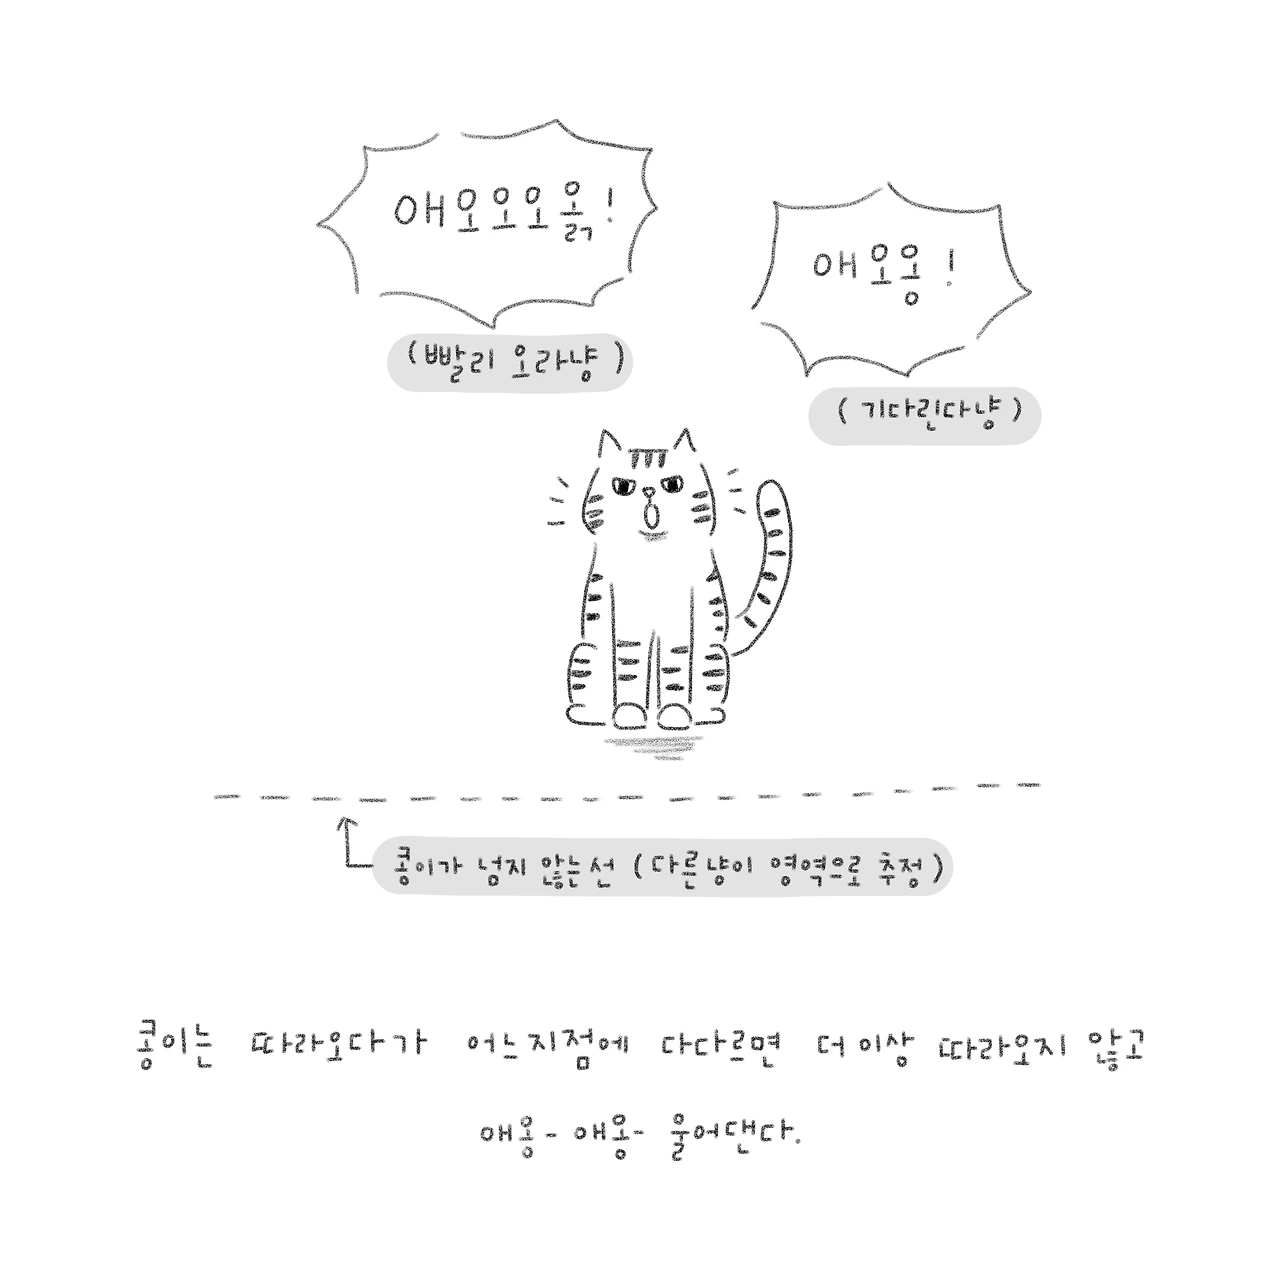 애오오오옭!
(빨리 오라냥)
애오옹!
(기다린다냥)
콩이가 넘지 않는선 (다른냥이 영역으로 추정)
콩이는 따라오다가 어느지점에 다다르면 더 이상 따라오지 않고
애옹- 애옹- 울어댄다.